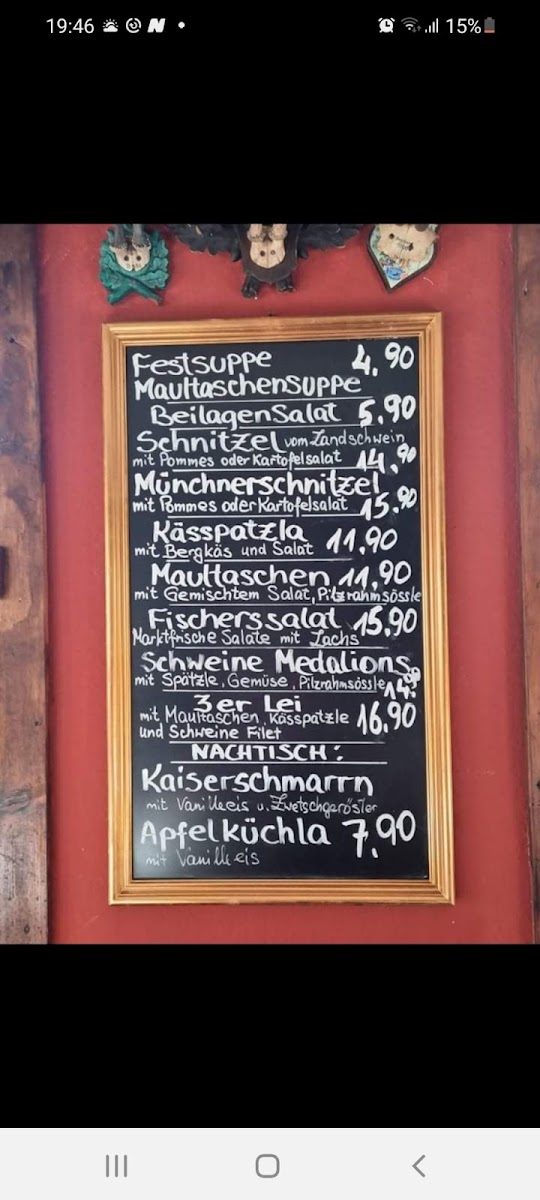 19:46
15%
Festsuppe 4,90
Maultaschensuppe
Beilagensalat 5,90
Schnitzel vom Landschwein
mit Pommes oder Kartofelsalat 14,90
Münchnerschnitzel
mit Pommes oder Kartofelsalat 15,90
Kässpatzla 11,90
mit Bergkäs und Salat
Maultaschen 11,90
mit Gemischtem Salat, Pilzrahmsössle
Fischerssalat 15,90
Marktfrische Salate mit Lachs
Schweine Medalions
mit Spätzle, Gemüse, Pilzrahmsössle 14,90
3er Lei
mit Maultaschen, Kässpatzle 16,90
und Schweine Filet
NACHTISCH:
Kaiserschmarrn
mit Vanilleis u. Zwetschgeröster
Apfelküchla 7,90
mit Vanilleis